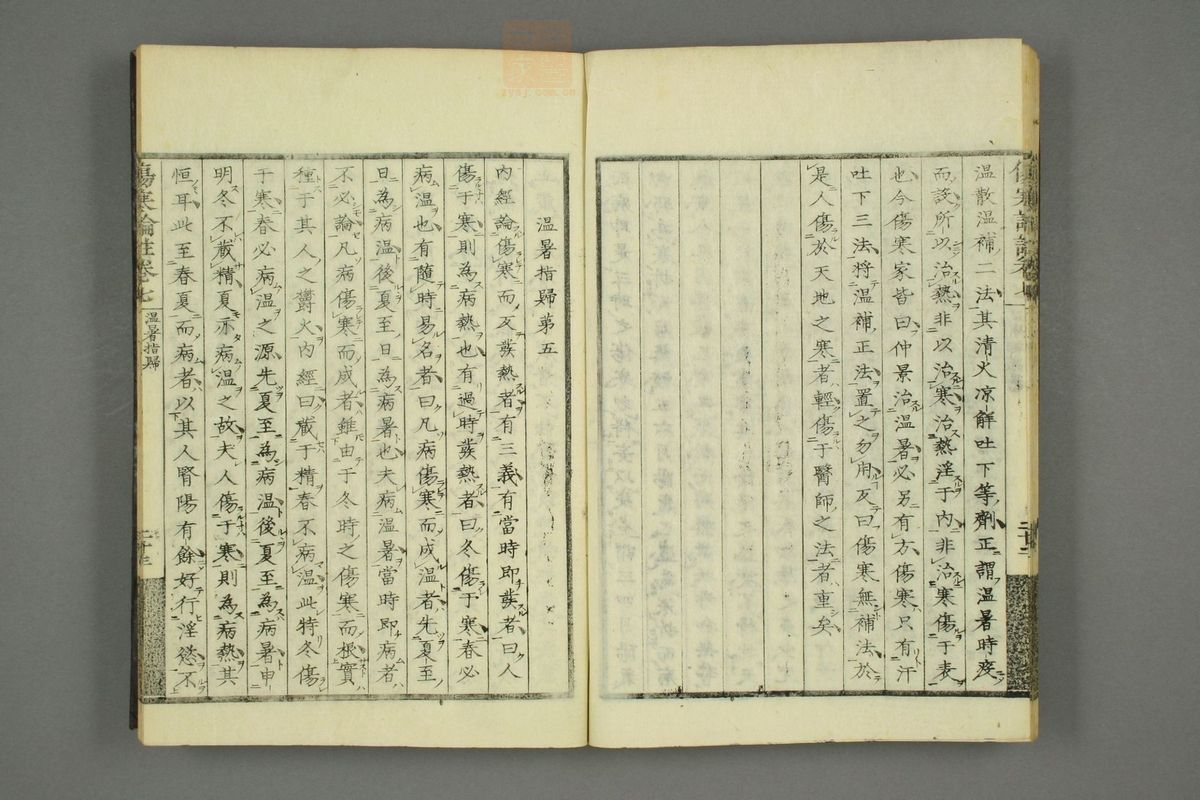 溫散溫補二法其清火凉解吐下等劑正謂溫暑時疫
而談所以治熱非以治寒治熱淫于內非治寒傷于表
也今傷寒家皆曰仲景治溫暑必另有方傷寒只有汗
吐下三法將溫補正法置之勿用反曰傷寒無補法於
是人傷於天地之寒者輕傷于醫師之法者重矣
溫暑指歸第五
內經論傷寒而反發熱者有三義有當時即發者曰人
傷于寒則為病熱也有過時發熱者曰冬傷于寒春必
病溫也有隨時易名者曰凡病傷寒而成溫者先夏至
日為病溫後夏至日為病暑也夫病溫暑當時即病者
不必論凡病傷寒而成者雖由于冬時之傷寒而根實
種于其人之欝火內經曰藏于精春不病溫此特冬傷
于寒春必病溫之源先夏至為病溫後夏至為病暑申
明冬不藏精夏亦病溫之故夫人傷于寒則為病熱其
恒耳此至春夏而病者以其人腎陽有餘好行淫慾不
傷寒論註卷七
溫暑指歸
二十三
zysj.com.cn